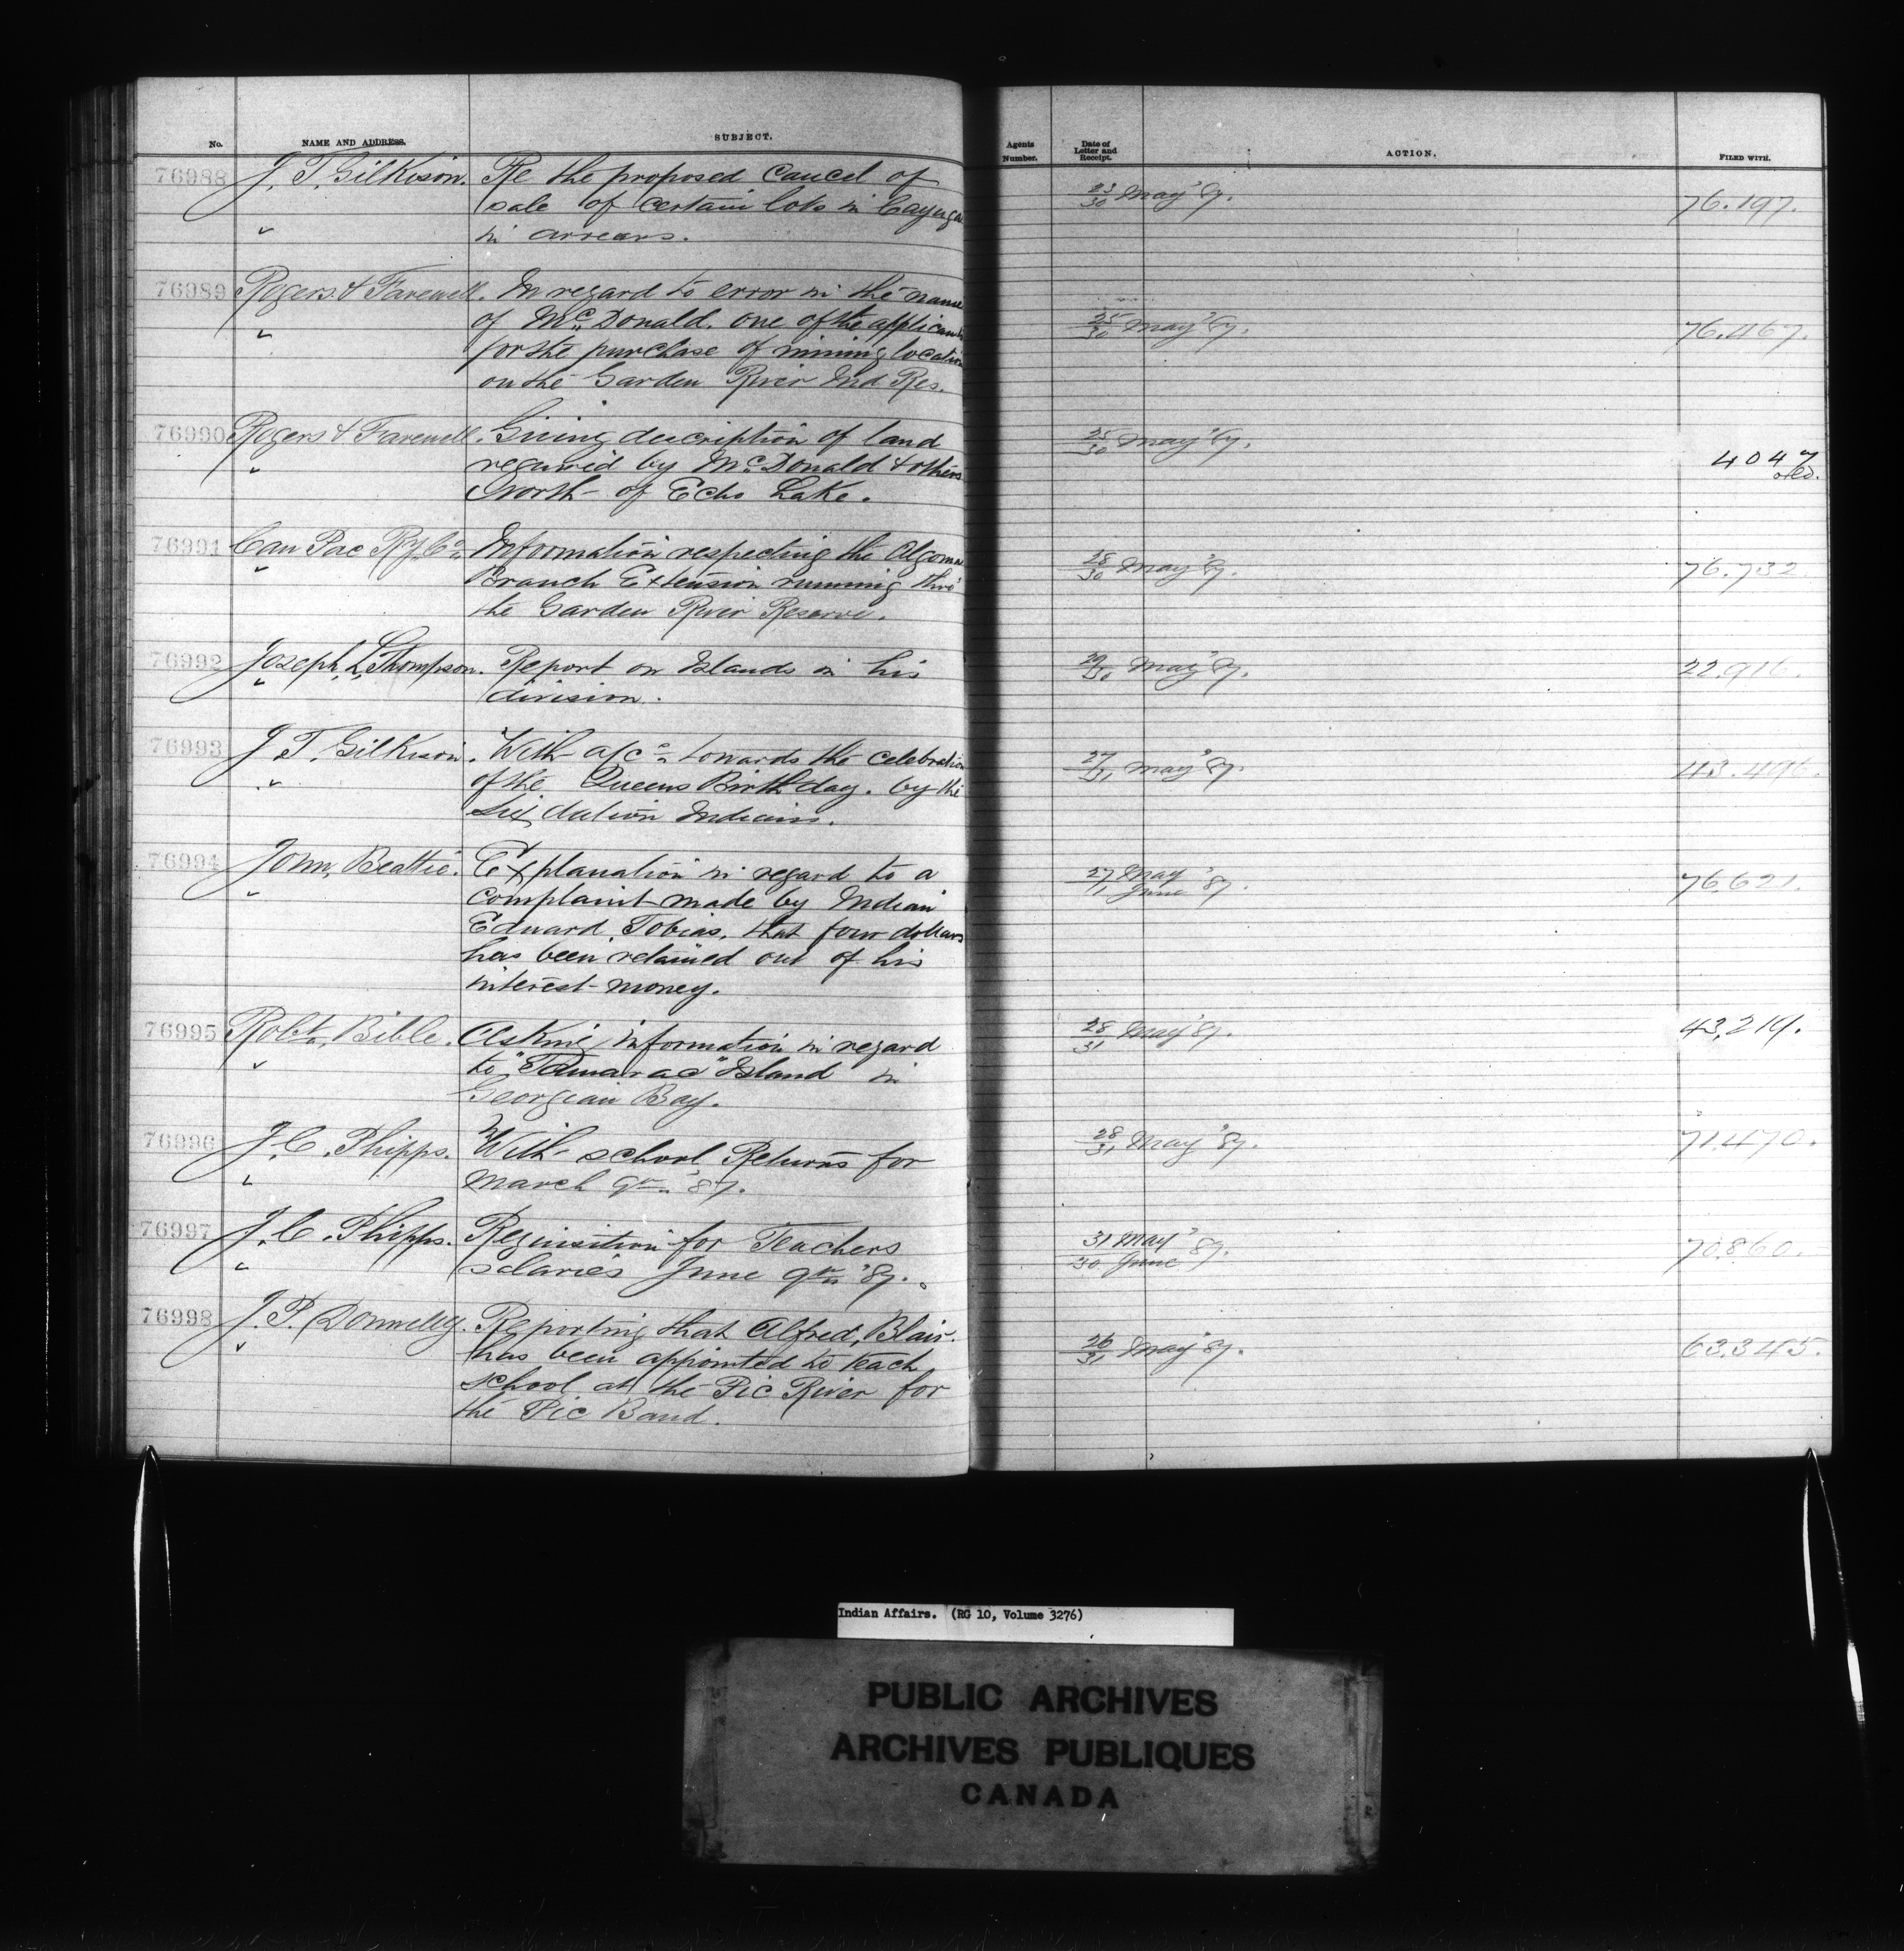 No. NAME AND ADDRESS. SUBJECT. Agents Number. Date of Letter and Receipt. ACTION. FILED WITH.
76988 J. T. Gilkison. Re the proposed cancel of 23/30 May '87. 76.197.
sale of certain lots in Cayuga
" in arrears.
76989 Rogers & Farewell. In regard to error in the name 25/30 May '87. 76.467.
" of Mc Donald. one of the applicants
for the purchase of mining location
on the Garden River Ind Res.
76990 Rogers & Farewell. Giving description of land 25/30 May '87. 4047
" required by Mc Donald & others old.
North of Echo Lake.
76991 Can Pac Ry Co. Information respecting the Algoma 28/30 May '87. 76.732.
" Branch Extension running thro'
the Garden River Reserve.
76992 Joseph L. Thompson. Report on Islands in his 29/30 May '87. 22.916.
" division.
76993 J T. Gilkison. With a/c towards the celebration 27/31 May '87. 43.496.
" of the Queens Birthday. by the
Six Nation Indians.
76994 John Beattie. Explanation in regard to a 27 May/1 June '87. 76.621.
" complaint made by Indian
Edward Tobias, that four dollars
has been retained out of his
interest money.
76995 Robt. Bible. Asking information in regard 28/31 May '87. 43,219.
" to "Tamarac" Island in
Georgian Bay.
76996 J. C. Phipps. With school Returns for 28/31 May '87. 71.470.
" March qr. '87.
76997 J. C. Phipps. Requisition for Teachers 31 May/30 June '87. 70.860.
" salaries June qr. '87.
76998 J. P. Donnelly. Reporting that Alfred, Blair. 26/31 May '87. 63.345.
" has been appointed to teach
school at the Pic River for
the Pic Band.
Indian Affairs. (RG 10, Volume 3276)
PUBLIC ARCHIVES
ARCHIVES PUBLIQUES
CANADA